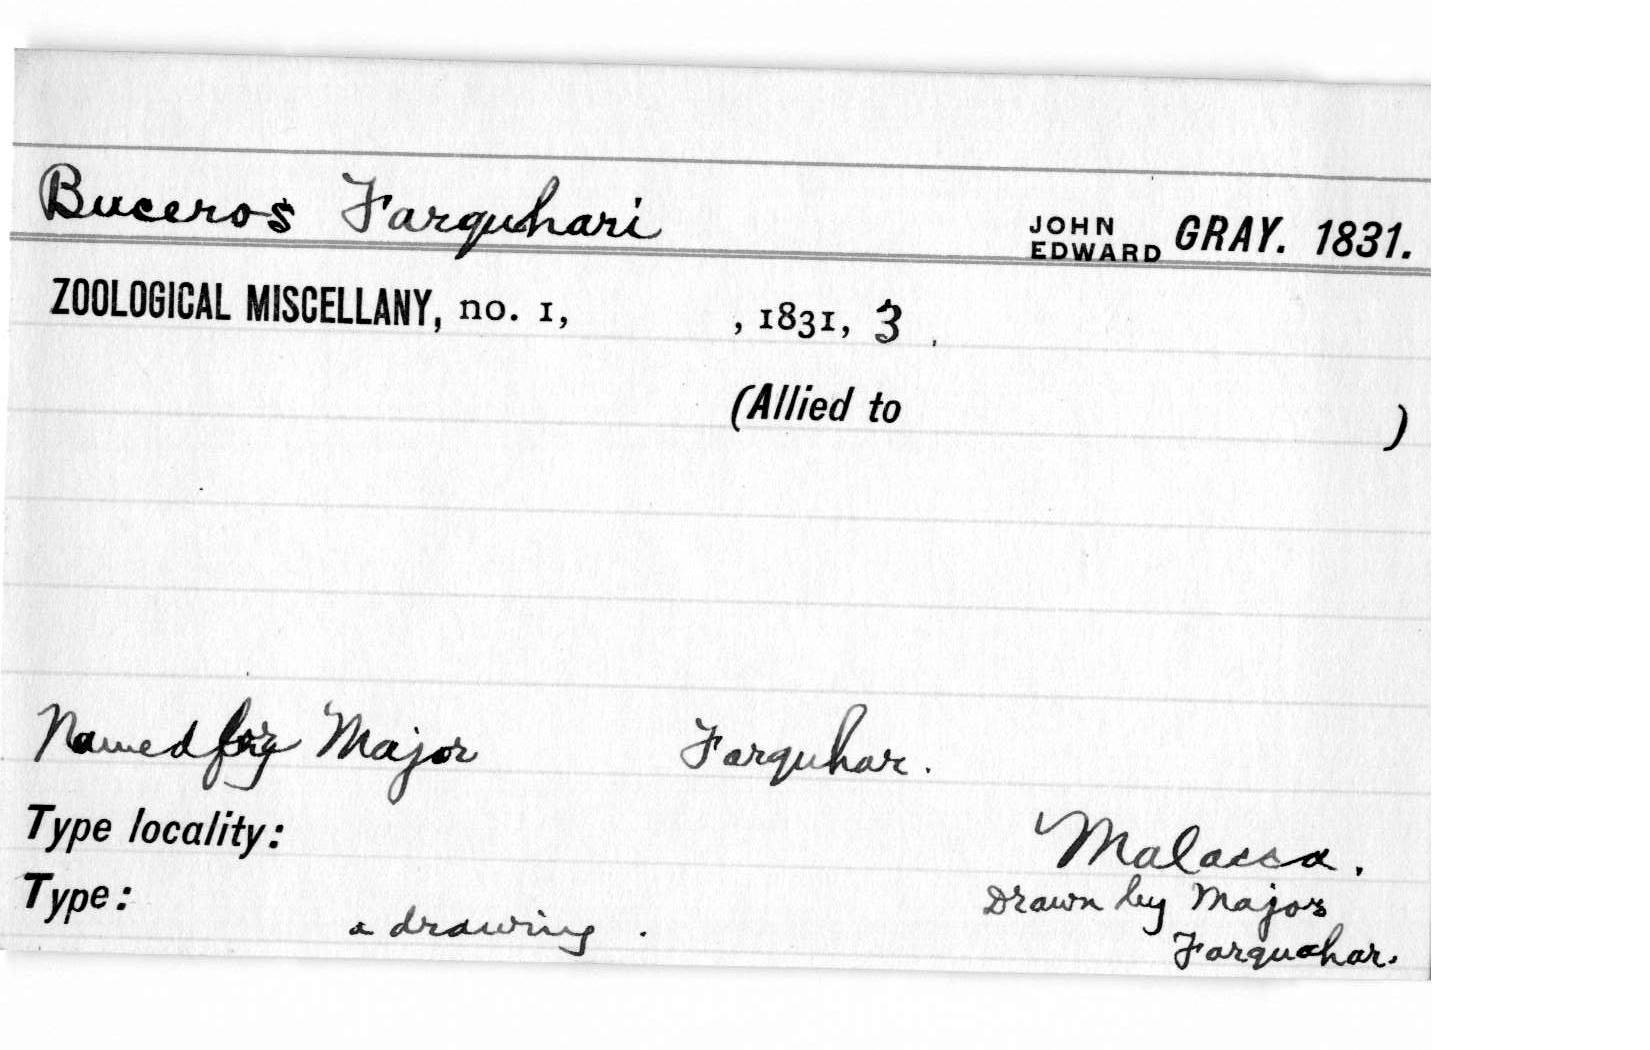 Buceros Farquhari JOHN EDWARD GRAY. 1831.
ZOOLOGICAL MISCELLANY, no. 1, , 1831, 3 .
(Allied to )
Named for Major Farquhar.
Type locality: Malacca.
Drawn by Major
Type: a drawing .
Farquahar.